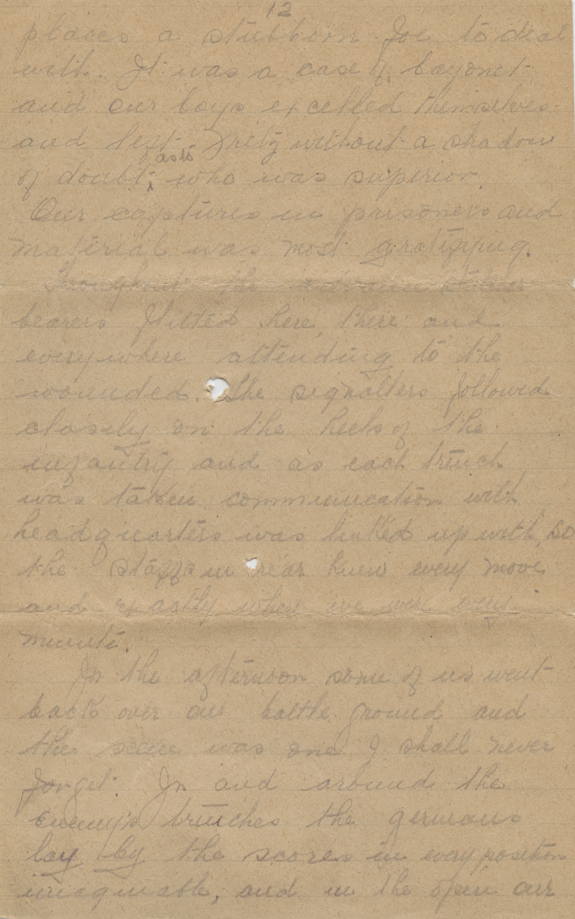 12
places a stubborn foe to deal
with. It was a case of bayonet
and our boys excelled themselves
and left Fritz without a shadow
of doubt as to who was superior.
Our captures in prisoners and
material was most gratifying.
Throughout the advance stretcher
bearers flitted here, there and
everywhere attending to the
wounded. The signallers followed
closely on the heels of the
infantry and as each trench
was taken communication with
headquarters was linked up with, so
the staffs in rear knew every move
and exactly where we were every
minute.
In the afternoon some of us went
back over our battle ground and
the scene was one I shall never
forget. In and around the
enemy's trenches the germans
lay by the scores in every position
imaginable, and in the open our